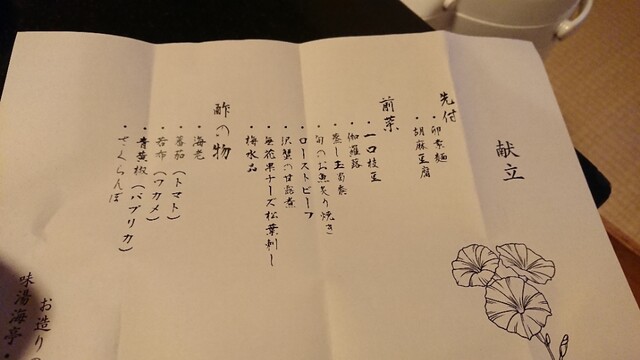 献立
先付
・卵素麺
・胡麻豆腐
前菜
・一口枝豆
・伽羅蕗
・蒸し玉蜀黍
・旬のお魚炙り焼き
・ローストビーフ
・沢蟹の甘露煮
・無花果チーズ松葉刺し
・梅水晶
酢の物
・海老
・蕃茄(トマト)
・若布(ワカメ)
・青黄椒(パプリカ)
・さくらんぼ
お造り
味湯海亭